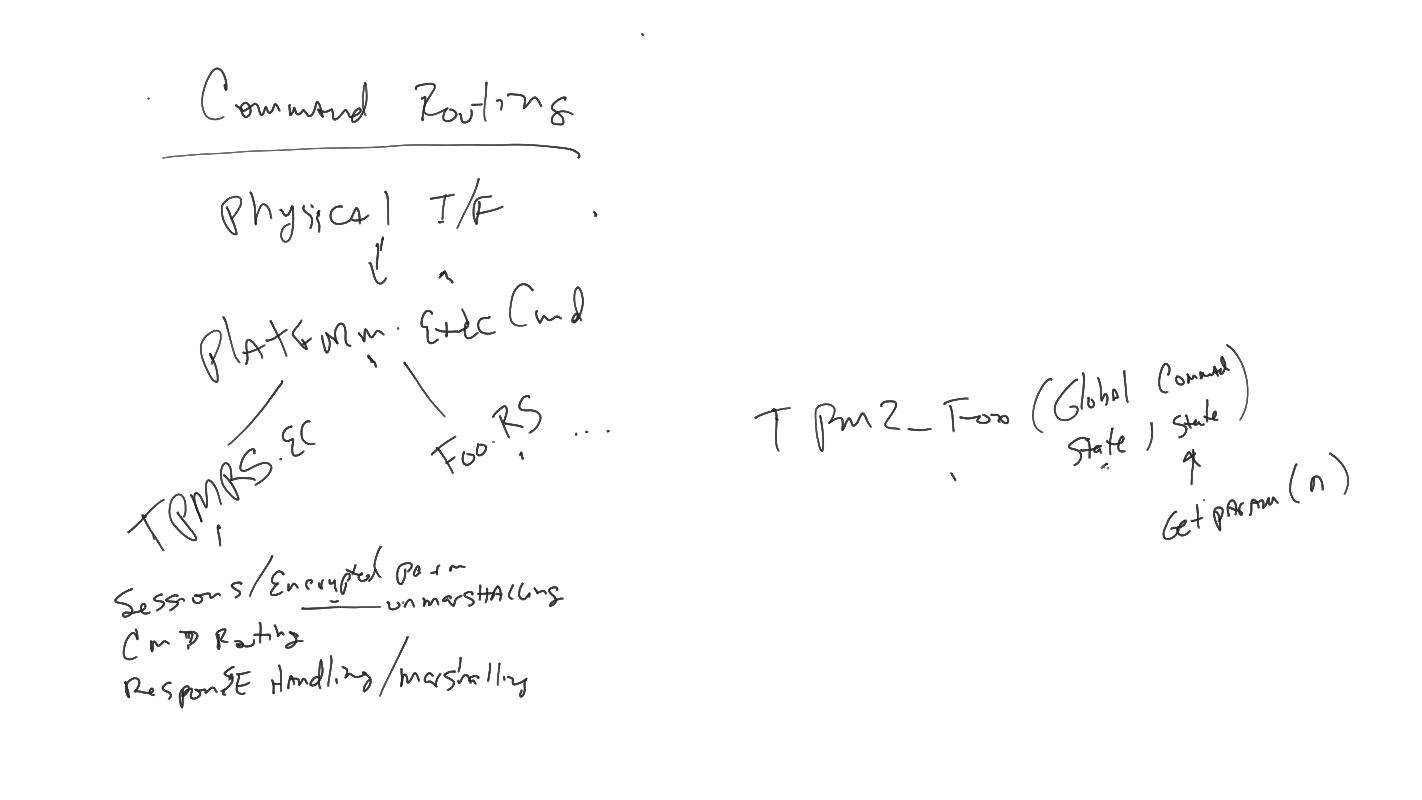 Command Routing
Physical I/F
Platform. Exec Cmd
TPMRS.EC
Foo.RS ...
Sessions/Encrypted Parm
unmarshalling
Cmd Routing
Response Handling/marshalling
TPM2_Foo (Global Command
State, State)
Get param (n)